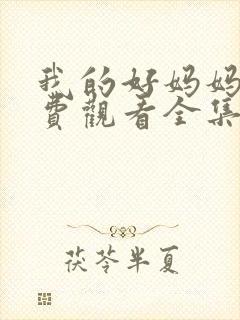 我的好妈妈
费觀看全集
茯苓半夏